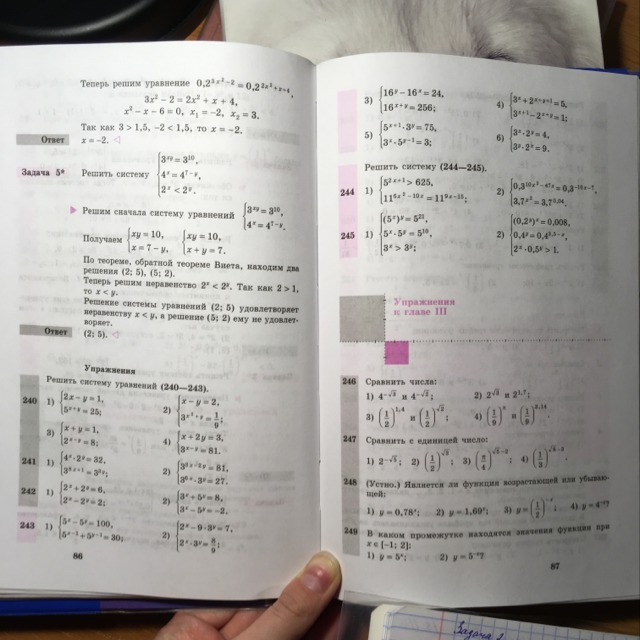 Теперь решим уравнение 0,2^{3x²−2} = 0,2^{2x²+x+4},
3x² − 2 = 2x² + x + 4,
x² − x − 6 = 0, x₁ = −2, x₂ = 3.
Так как 3 > 1,5, −2 < 1,5, то x = −2.
Ответ x = −2. ◁
Задача 5* Решить систему { 3^{xy} = 3^{10}, 4^x = 4^{7−y}, 2^x < 2^y.
▶ Решим сначала систему уравнений { 3^{xy} = 3^{10}, 4^x = 4^{7−y}.
Получаем { xy = 10, x = 7 − y, { xy = 10, x + y = 7.
По теореме, обратной теореме Виета, находим два
решения (2; 5), (5; 2).
Теперь решим неравенство 2^x < 2^y. Так как 2 > 1,
то x < y.
Решение системы уравнений (2; 5) удовлетворяет
неравенству x < y, а решение (5; 2) ему не удовлет-
воряет.
Ответ (2; 5). ◁
Упражнения
Решить систему уравнений (240—243).
240 1) { 2x − y = 1, 5^{x+y} = 25; 2) { x − y = 2, 3^{x²+y} = 1/9;
3) { x + y = 1, 2^{x−y} = 8; 4) { x + 2y = 3, 3^{x−y} = 81.
241 1) { 4^x · 2^y = 32, 3^{8x+1} = 3^{3y}; 2) { 3^{3x−2y} = 81, 3^{6x} · 3^y = 27.
242 1) { 2^x + 2^y = 6, 2^x − 2^y = 2; 2) { 3^x + 5^y = 8, 3^x − 5^y = −2.
243 1) { 5^x − 5^y = 100, 5^{x−1} + 5^{y−1} = 30; 2) { 2^x − 9 · 3^y = 7, 2^x · 3^y = 8/9;
86
3) { 16^y − 16^x = 24, 16^{x+y} = 256; 4) { 3^x + 2^{x+y+1} = 5, 3^{x+1} − 2^{x+y} = 1;
5) { 5^{x+1} · 3^y = 75, 3^x · 5^{y−1} = 3; 6) { 3^x · 2^y = 4, 3^y · 2^x = 9.
Решить систему (244—245).
244 1) { 5^{2x+1} > 625, 11^{6x²−10x} = 11^{9x−15}; 2) { 0,3^{10x²−47x} = 0,3^{−10x−7}, 3,7^{x²} = 3,7^{0,04}.
245 1) { (5^x)^y = 5^{21}, 5^x · 5^y = 5^{10}, 3^x > 3^y; 2) { (0,2^y)^x = 0,008, 0,4^y = 0,4^{3,5−x}, 2^x · 0,5^y > 1.
Упражнения
к главе III
246 Сравнить числа:
1) 4^{−√3} и 4^{−√2}; 2) 2^{√3} и 2^{1,7};
3) (1/2)^{1,4} и (1/2)^{√2}; 4) (1/9)^π и (1/9)^{3,14}.
247 Сравнить с единицей число:
1) 2^{−√5}; 2) (1/2)^{√3}; 3) (π/4)^{√5−2}; 4) (1/3)^{√8−3}.
248 (Устно.) Является ли функция возрастающей или убываю-
щей:
1) y = 0,78^x; 2) y = 1,69^x; 3) y = (1/2)^{−x}; 4) y = 4^{−x}?
249 В каком промежутке находятся значения функции при
x ∈ [−1; 2]:
1) y = 5^x; 2) y = 5^{−x}?
87
Задача